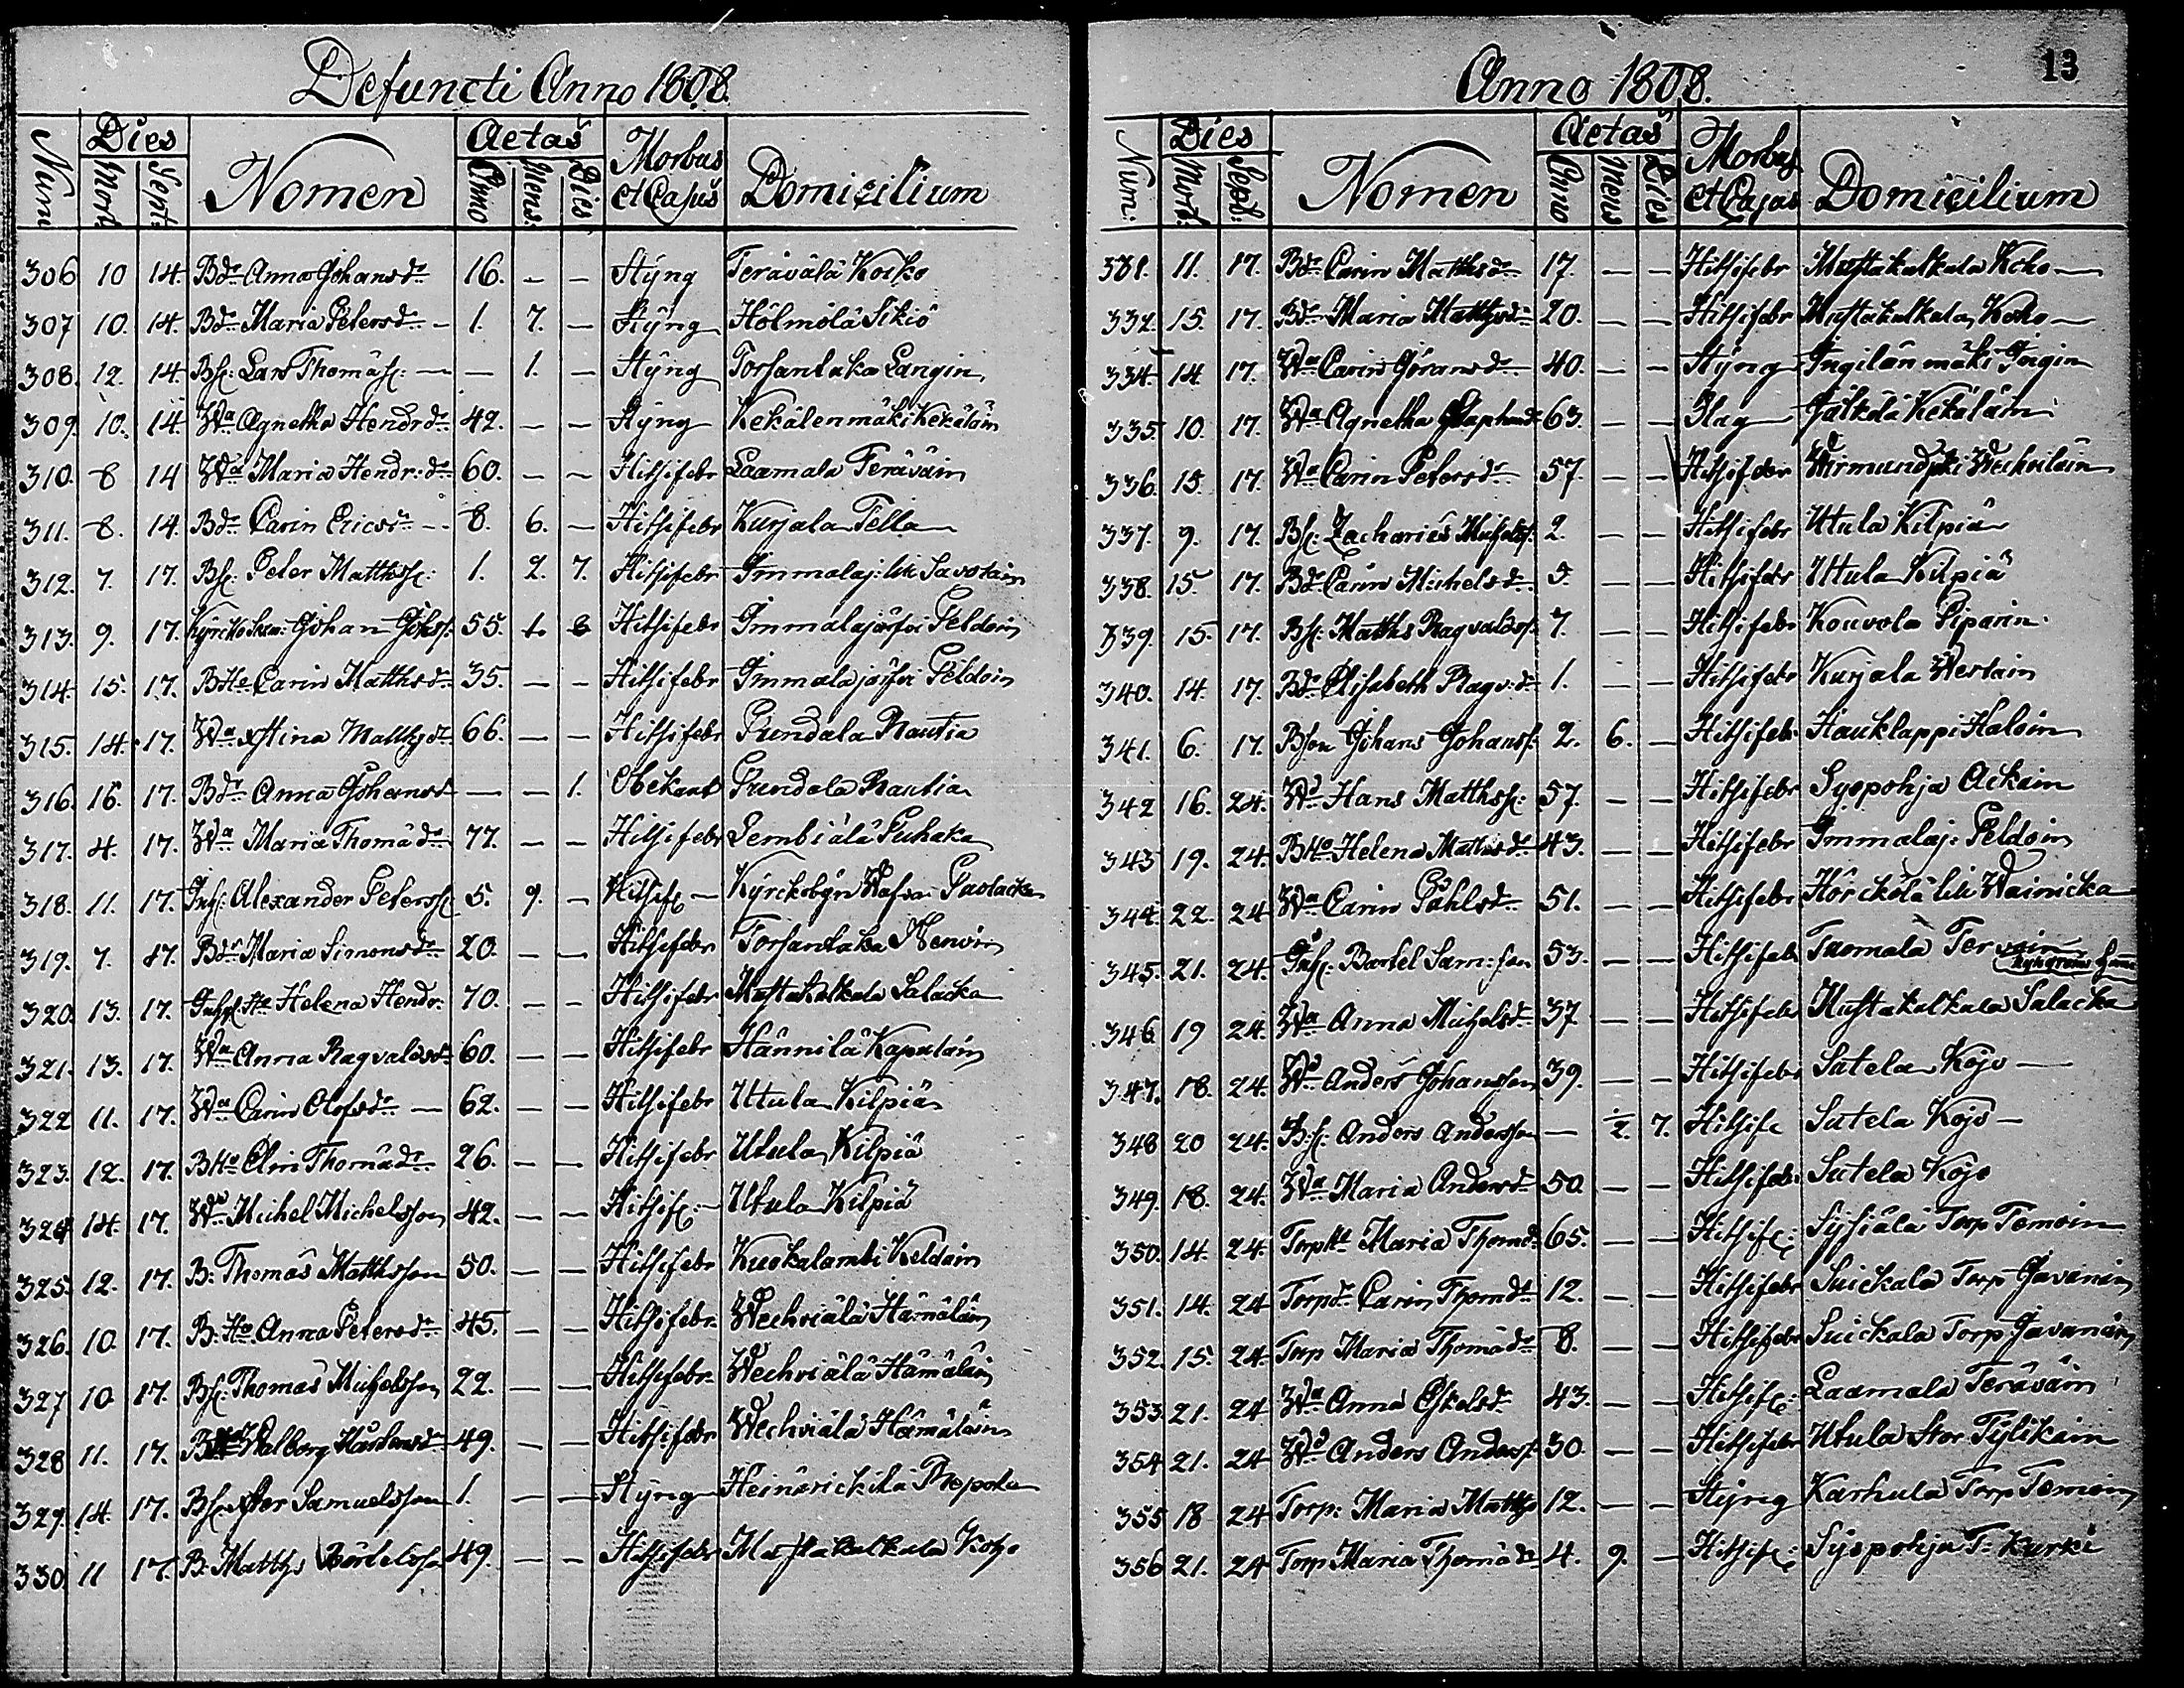 Defuncti Anno 1808.
Num Dies Mort Sept: Nomen Aetas Anno Mens: Dies Morbus et Casus Domicilium
306 10 14. Bdr Anna Johansdr 16. — — Styng Teräválä Koiko
307 10. 14. Bdr Maria Petersdr — 1. 7. — Styng Hölmölä Sikiö
308. 12. 14. Bs: Lars Thomäss: — — 1. — Styng Torsantaka Langin
309. 10. 14. Wa Agnetha Hendrdr 42. — — Styng Kekälenmäki Kekäläin
310. 8 14 Wa Maria Hendr: dr 60. — — Hitsifebr Laamala Teräväin
311. 8. 14. Bdr Carin Ericsdr — 8. 6. — Hitsifebr Kurjala Tella
312. 7. 17. Bs: Peter Matthss: 1. 2. 7. Hitsifebr Immalaj: lit Savolain
313. 9. 17. Johan Johss: 55. Hitsifebr Immalajärfvi Peldoin
314. 15. 17. BHa Carin Matthsdr 35. — — Hitsifebr Immalajärfvi Peldoin
315. 14. 17. Wa Stina Matthsdr 66. — — Hitsifebr Pundala Rautia
316. 16. 17. Bdr Anna Johansd — — 1. Obekant Pundala Rautia
317. 4. 17. Wa Maria Thomädr 77. — — Hitsifebr Lembiälä Puhaka
318. 11. 17. Inhs: Alexander Peterss: 5. 9. — Hitsife: — Kyrckobyn
319. 7. 17. Bdr Maria Simonsdr 20. — — Hitsifebr Torsantaka Henvin
320. 13. 17. Helena Hendr: 70. — — Hitsifebr Mustakalkala Salacka
321. 13. 17. Wa Anna Ragvaldsdr 60. — — Hitsifebr Hännilä Kapulain
322 11. 17. Wa Carin Olofsdr — 62. — — Hitsifebr Utula Kilpiä
323. 12. 17. BHa Elin Thomädr 26. — — Hitsifebr Utula Kilpiä
324 14. 17. Wd Michel Michelsson 42. — — Hitsife: — Utula Kilpiä
325. 12. 17. B: Thomas Matthsson 50. — — Hitsifebr Kuokalambi Keldain
326 10. 17. B: Ha Anna Petersdr 45. — — Hitsifebr. Wechviälä Hämäläin
327 10. 17. Bs: Thomas Michelsson 22. — — Hitsifebr. Wechviälä Hämäläin
328 11. 17. Walborg 49. — — Hitsifebr Wechviälä Hämäläin
329. 14. 17. Bs: Samuelsson 1. — — Styng Heinärickilä Repoka
330 11 17. B: Matths Bärtelsson 49. — — Hitsifebr Mustakalkala Koho
Anno 1808.
13
Num: Dies Mort: Sept: Nomen Aetas Anno Mens Dies Morbus et Casus Domicilium
331. 11. 17. Bdr Carin Matthsdr 17. — — Hitsifebr Mustakalkala Koho —
332. 15. 17. Bdr Maria Matthsdr 20. — — Hitsifebr Mustakalkala Koho —
334. 14. 17. Wa Carin Göransdr 40. — — Styng Ingilän mäki Ingin
335. 10. 17. Wa Agnetha Staphansdr 63. — — Slag Jälkälä Kekäläin
336. 15. 17. Wa Carin Petersdr 57. — — Hitsifebr
337. 9. 17. Bs: Zacharias Michelss: 2. — — Hitsifebr Utula Kilpiä
338. 15. 17. Bdr Carin Michelsdr 5. — — Hitsifebr Utula Kilpiä
339. 15. 17. Bs: Matths Ragvaldss: 7. — — Hitsifebr Kouvola Piparin
340. 14. 17. Bdr Elisabeth Ragv: dr 1. — — Hitsifebr Kurjala Westain
341. 6. 17. Bson Johans Johanss: 2. 6. — Hitsifebr Hauklappi Haloin
342 16. 24. Wd Hans Matthss: 57. — — Hitsifebr Syspohja Ackain
343 19. 24. BHa Helena Mattsdr 43. — — Hitsifebr Immalaj: Peldoin
344. 22. 24 Wa Carin Påhlsdr 51. — — Hitsifebr Härckälä lill Wainicka
345. 21. 24. Inhs: Bartel Sam: son 53. — — Hitsifebr Tuomala Tervain
346. 19 24. Wa Anna Michelsdr 37 — — Hitsifebr Mustakalkala Salacka
347. 18. 24. Wd Anders Johansson 39. — — Hitsifebr Satela Kojo —
348 20 24. B: s: Anders Andersson — 2. 7. Hitsife Satela Kojo —
349. 18. 24. Wa Maria Andersdr 50. — — Hitsifebr Satela Kojo
350. 14. 24. Torp Ha Maria Thomdr 65. — — Hitsife: Syfiälä Torp Temoin
351. 14. 24 Torpdr Carin Thomdr 12. — — Hitsifebr Suickala Torp Javanain
352. 15. 24. Torp Maria Thomädr 8. — — Hitsifebr Suickala Torp Javanain
353 21. 24 Wa Anna Eskelsdr 43. — — Hitsife: Laamala Teräväin
354 21. 24 Wd Anders Anderss: 30. — — Hitsifebr Utula Stor Tylikäin
355 18 24 Torp: Maria Matths 12. — — Styng Karhula Torp Temoin
356 21. 24 Torp Maria Thomädr 4. 9. — Hitsife: Syspohja T: Kurki